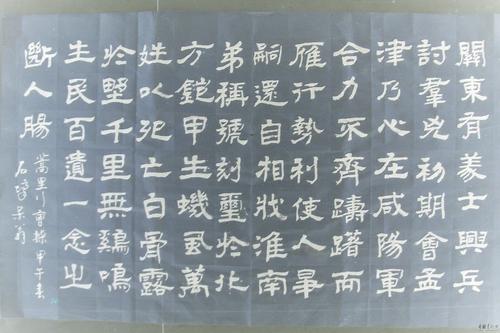 關東有義士興兵
討羣兇初期會孟
津乃心在咸陽軍
合力不齊躊躇而
雁行勢利使人爭
嗣還自相戕淮南
弟稱號刻璽於北
方鎧甲生蟣虱萬
姓以死亡白骨露
於野千里無鷄鳴
生民百遺一念之
斷人腸
蒿里行曹操甲午春